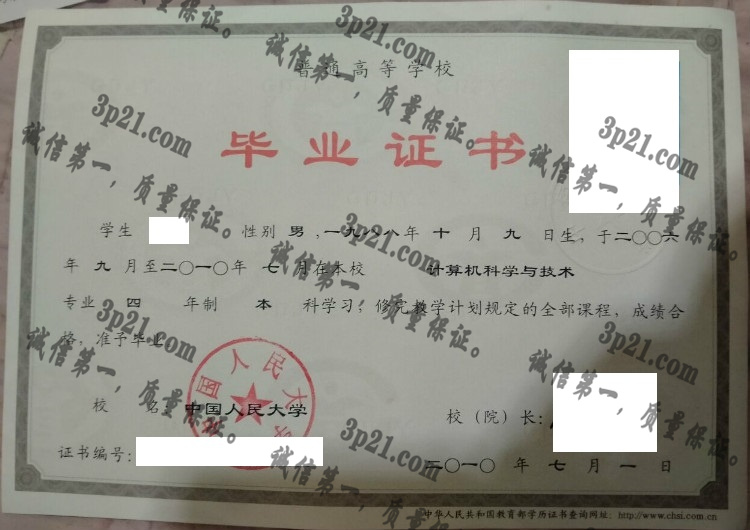 普通高等学校
毕业证书
学生 性别 男 ,一九八八年 十 月 九 日生, 于二〇〇六
年 九 月至二〇一〇年 七 月在本校 计算机科学与技术
专业 四 年制 本 科学习, 修完教学计划规定的全部课程, 成绩合
格, 准予毕业
国人民大学
校 名 中国人民大学 校(院)长:
证书编号: 二〇一〇 年 七 月 一 日
中华人民共和国教育部学历证书查询网址: http://www.chsi.com.cn
3p21.com
诚信第一,质量保证。
3p21.com
诚信第一,质量保证。
3p21.com
诚信第一,质量保证。
3p21.com
诚信第一,质量保证。
3p21.com
诚信第一,质量保证。
3p21.com
诚信第一,质量保证。
3p21.com
诚信第一,质量保证。